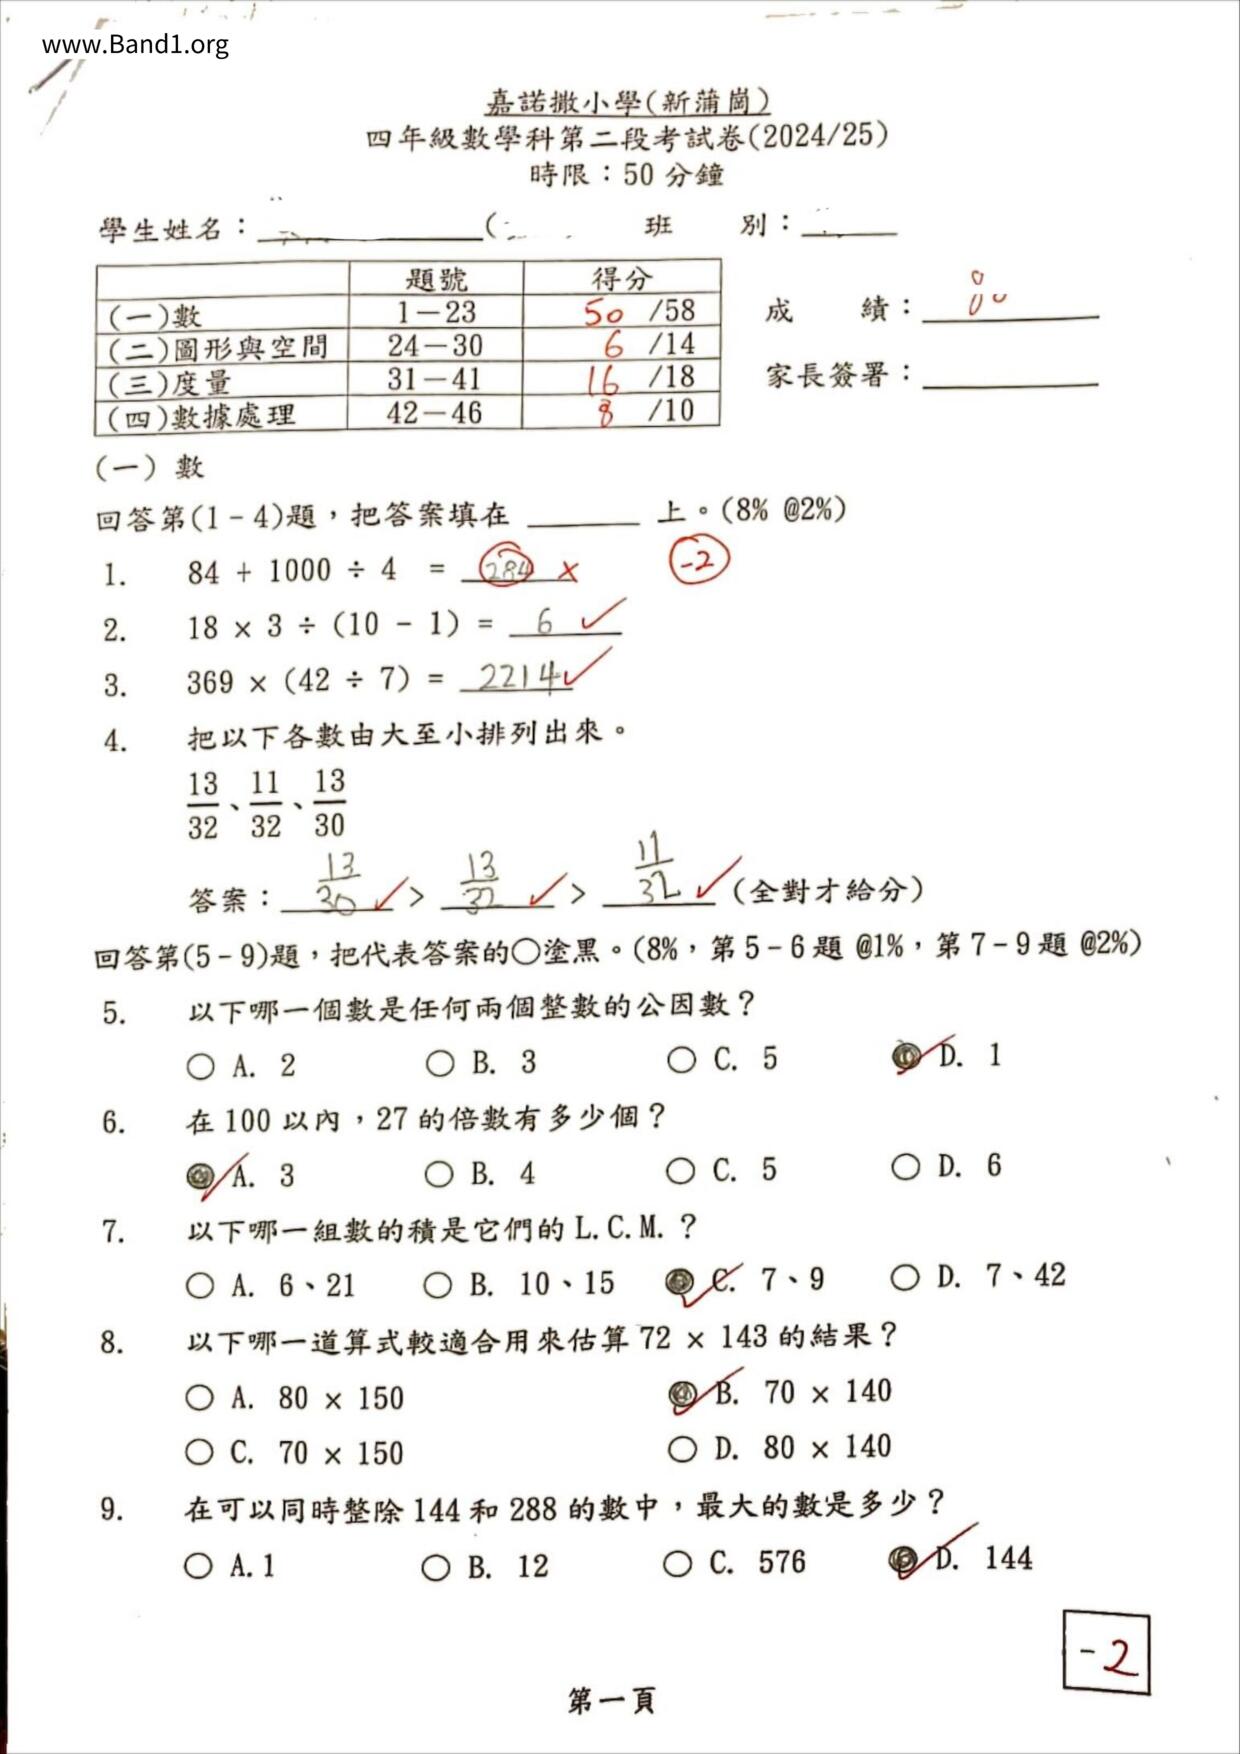 www.Band1.org
嘉諾撒小學(新蒲崗)
四年級數學科第二段考試卷(2024/25)
時限：50 分鐘
學生姓名：________( 班 別：______
題號 得分
(一)數 1－23 50 /58
(二)圖形與空間 24－30 6 /14
(三)度量 31－41 16 /18
(四)數據處理 42－46 8 /10
成 績：80
家長簽署：________
(一) 數
回答第(1－4)題，把答案填在 ______ 上。(8% @2%)
1. 84 + 1000 ÷ 4 = 284 × -2
2. 18 × 3 ÷ (10 - 1) = 6 ✓
3. 369 × (42 ÷ 7) = 2214 ✓
4. 把以下各數由大至小排列出來。
13/32、11/32、13/30
答案：13/30 ✓ > 13/32 ✓ > 11/32 ✓ (全對才給分)
回答第(5－9)題，把代表答案的○塗黑。(8%，第 5－6 題 @1%，第 7－9 題 @2%)
5. 以下哪一個數是任何兩個整數的公因數？
○ A. 2 ○ B. 3 ○ C. 5 ● D. 1
6. 在 100 以內，27 的倍數有多少個？
● A. 3 ○ B. 4 ○ C. 5 ○ D. 6
7. 以下哪一組數的積是它們的 L.C.M.？
○ A. 6、21 ○ B. 10、15 ● C. 7、9 ○ D. 7、42
8. 以下哪一道算式較適合用來估算 72 × 143 的結果？
○ A. 80 × 150 ● B. 70 × 140
○ C. 70 × 150 ○ D. 80 × 140
9. 在可以同時整除 144 和 288 的數中，最大的數是多少？
○ A. 1 ○ B. 12 ○ C. 576 ● D. 144
-2
第一頁